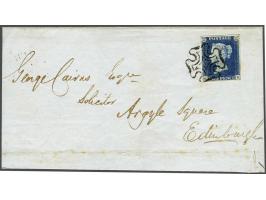 POSTAGE
George Cairns Esqre
Solicitor
Argyle Square
Edinburgh